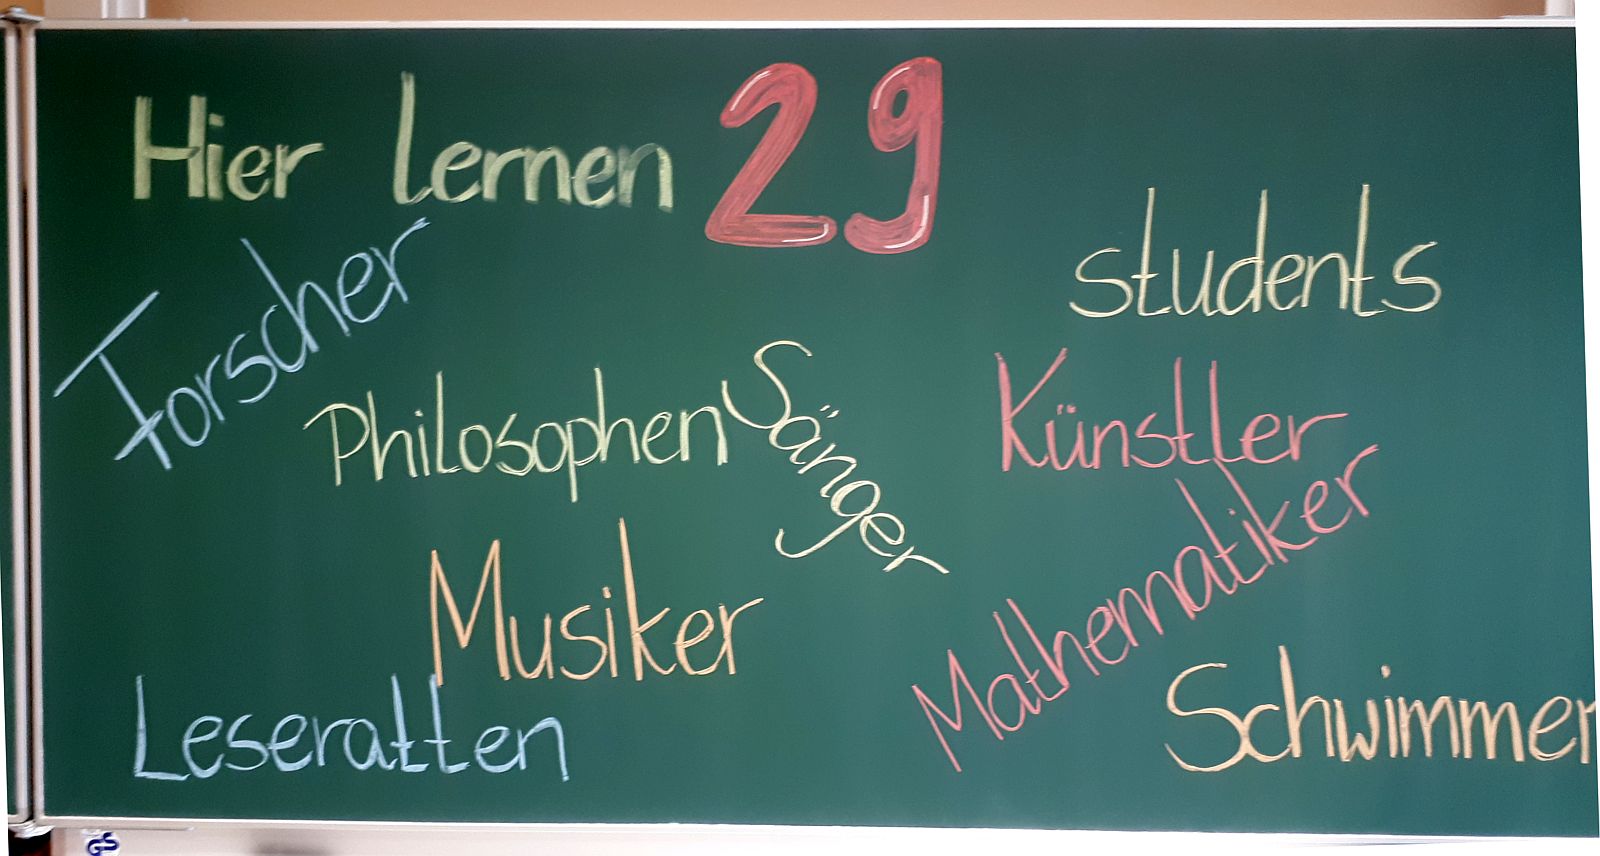 Hier lernen 29
students
Forscher
Philosophen
Sänger
Künstler
Musiker
Mathematiker
Leseratten
Schwimmer
GS